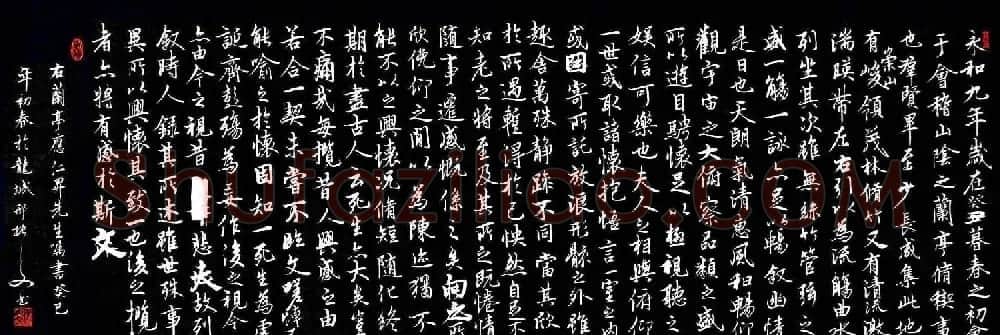 永和九年歲在癸丑暮春之初
于會稽山陰之蘭亭脩稧事
也群賢畢至少長咸集此
有崇山峻領茂林脩竹又有清流激
湍暎帶左右引以為流觴曲
列坐其次雖無絲竹管弦之
盛一觴一詠亦足以暢敘幽情
是日也天朗氣清惠風和暢仰
觀宇宙之大俯察品類之盛
所以遊目騁懷足以極視聽之
娛信可樂也夫人之相與俯仰
一世或取諸懷抱悟言一室之內
或因寄所託放浪形骸之外雖
趣舍萬殊靜躁不同當其欣
於所遇暫得於己怏然自足不
知老之將至及其所之既惓情
隨事遷感慨係之矣向之所
欣俛仰之閒以為陳迹猶不
能不以之興懷況脩短隨化終
期於盡古人云死生亦大矣豈
不痛哉每攬昔人興感之由
若合一契未嘗不臨文嗟悼
能喻之於懷固知一死生為虛
誕齊彭殤為妄作後之視今
亦由今之視昔悲夫故列
敘時人錄其所述雖世殊事
異所以興懷其致一也後之攬
者亦將有感於斯文
右蘭亭應仁昇先生寫書癸巳
年初春於龍城
Shufaziliao.com